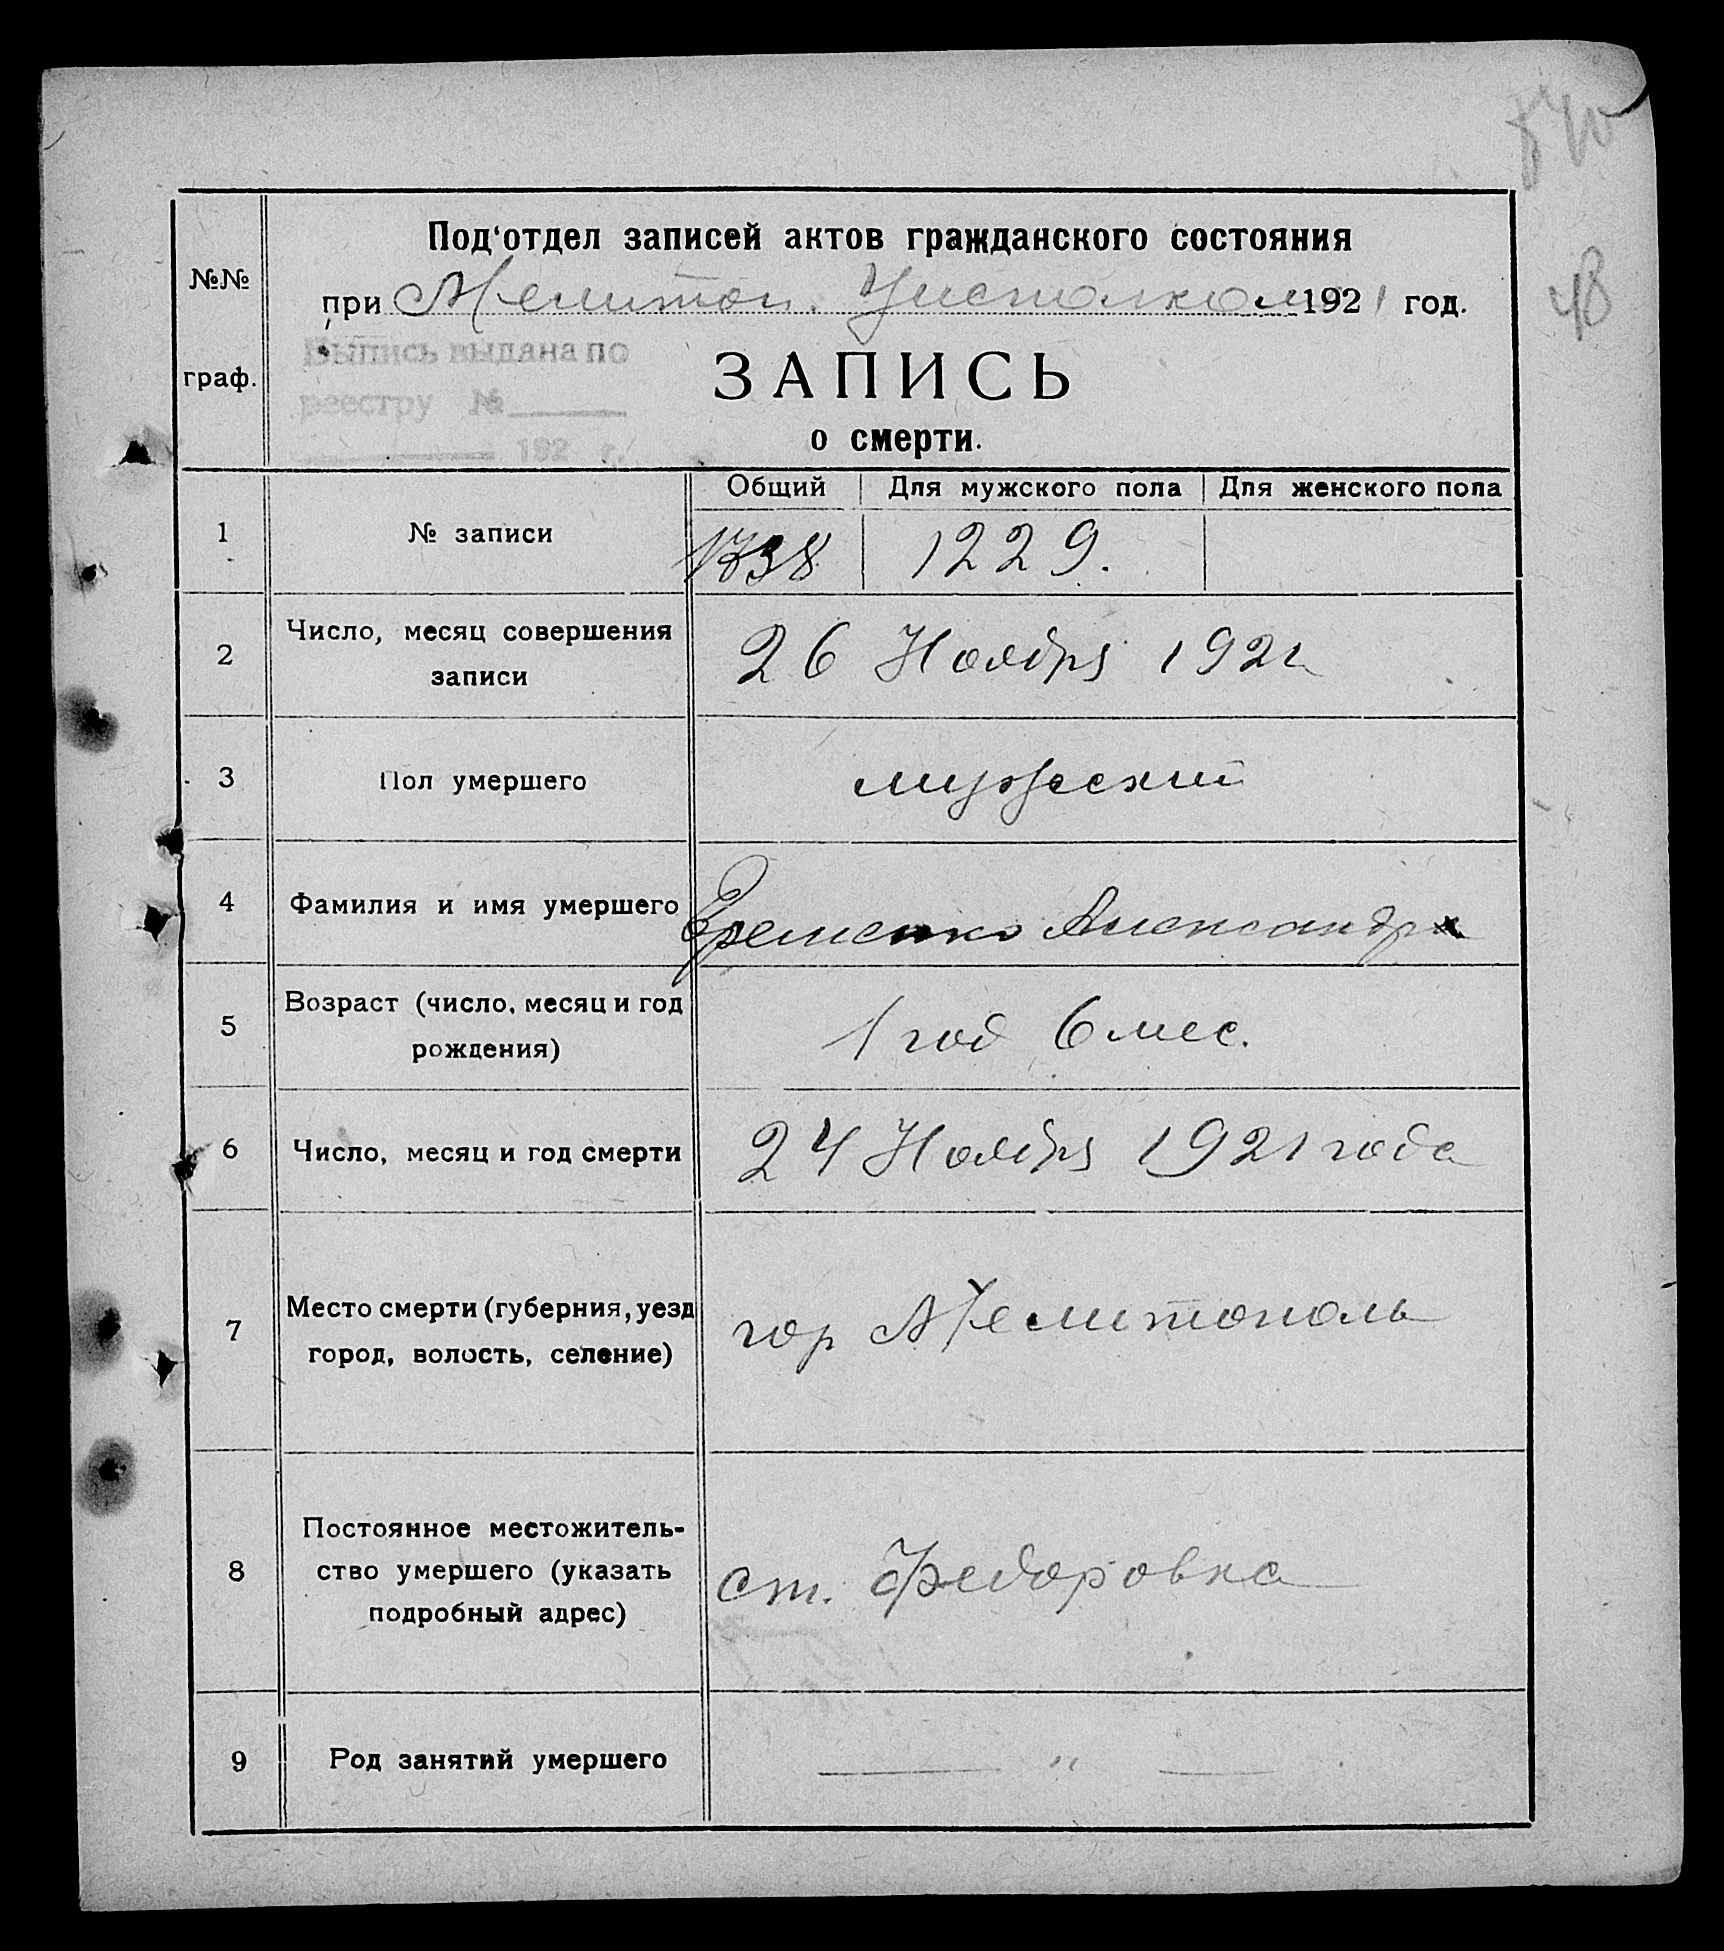 840
Под'отдел записей актов гражданского состояния
№№
при Мелитоп. Уисполком 1921 год.
48
Выпись выдана по
граф.
ЗАПИСЬ
реестру №
о смерти.
192 г.
Общий Для мужского пола Для женского пола
1 № записи 1738 1229.
2 Число, месяц совершения
записи
26 Ноября 1921
3 Пол умершего мужеский
4 Фамилия и имя умершего Еременко Александр
5 Возраст (число, месяц и год
рождения)
1 год 6 мес.
6 Число, месяц и год смерти 24 Ноября 1921 года
7 Место смерти (губерния, уезд
город, волость, селение)
гор Мелитополь
8 Постоянное местожитель-
ство умершего (указать
подробный адрес)
ст. Федоровка
9 Род занятий умершего — " —